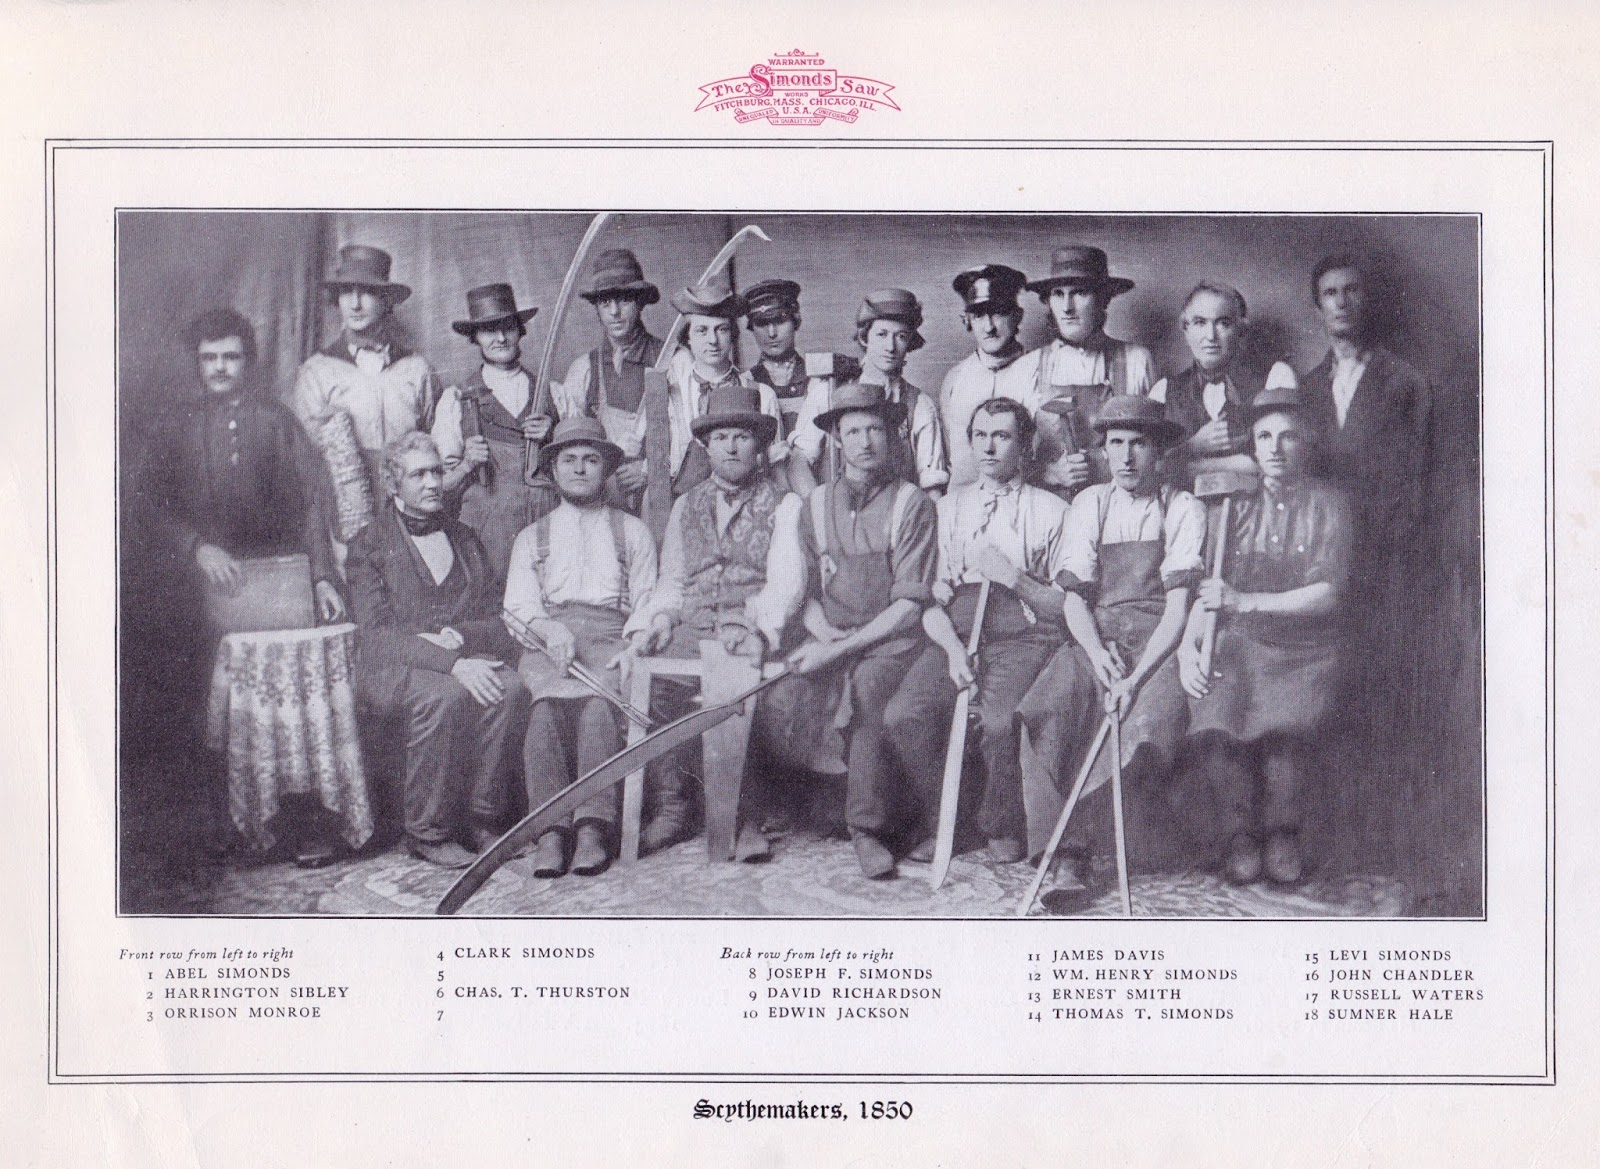 WARRANTED
The Simonds Saw
WORKS
FITCHBURG, MASS. CHICAGO, ILL.
U.S.A.
UNEQUALED UNIFORMITY
IN QUALITY AND
Front row from left to right
1 ABEL SIMONDS
2 HARRINGTON SIBLEY
3 ORRISON MONROE
4 CLARK SIMONDS
5
6 CHAS. T. THURSTON
7
Back row from left to right
8 JOSEPH F. SIMONDS
9 DAVID RICHARDSON
10 EDWIN JACKSON
11 JAMES DAVIS
12 WM. HENRY SIMONDS
13 ERNEST SMITH
14 THOMAS T. SIMONDS
15 LEVI SIMONDS
16 JOHN CHANDLER
17 RUSSELL WATERS
18 SUMNER HALE
Scythemakers, 1850